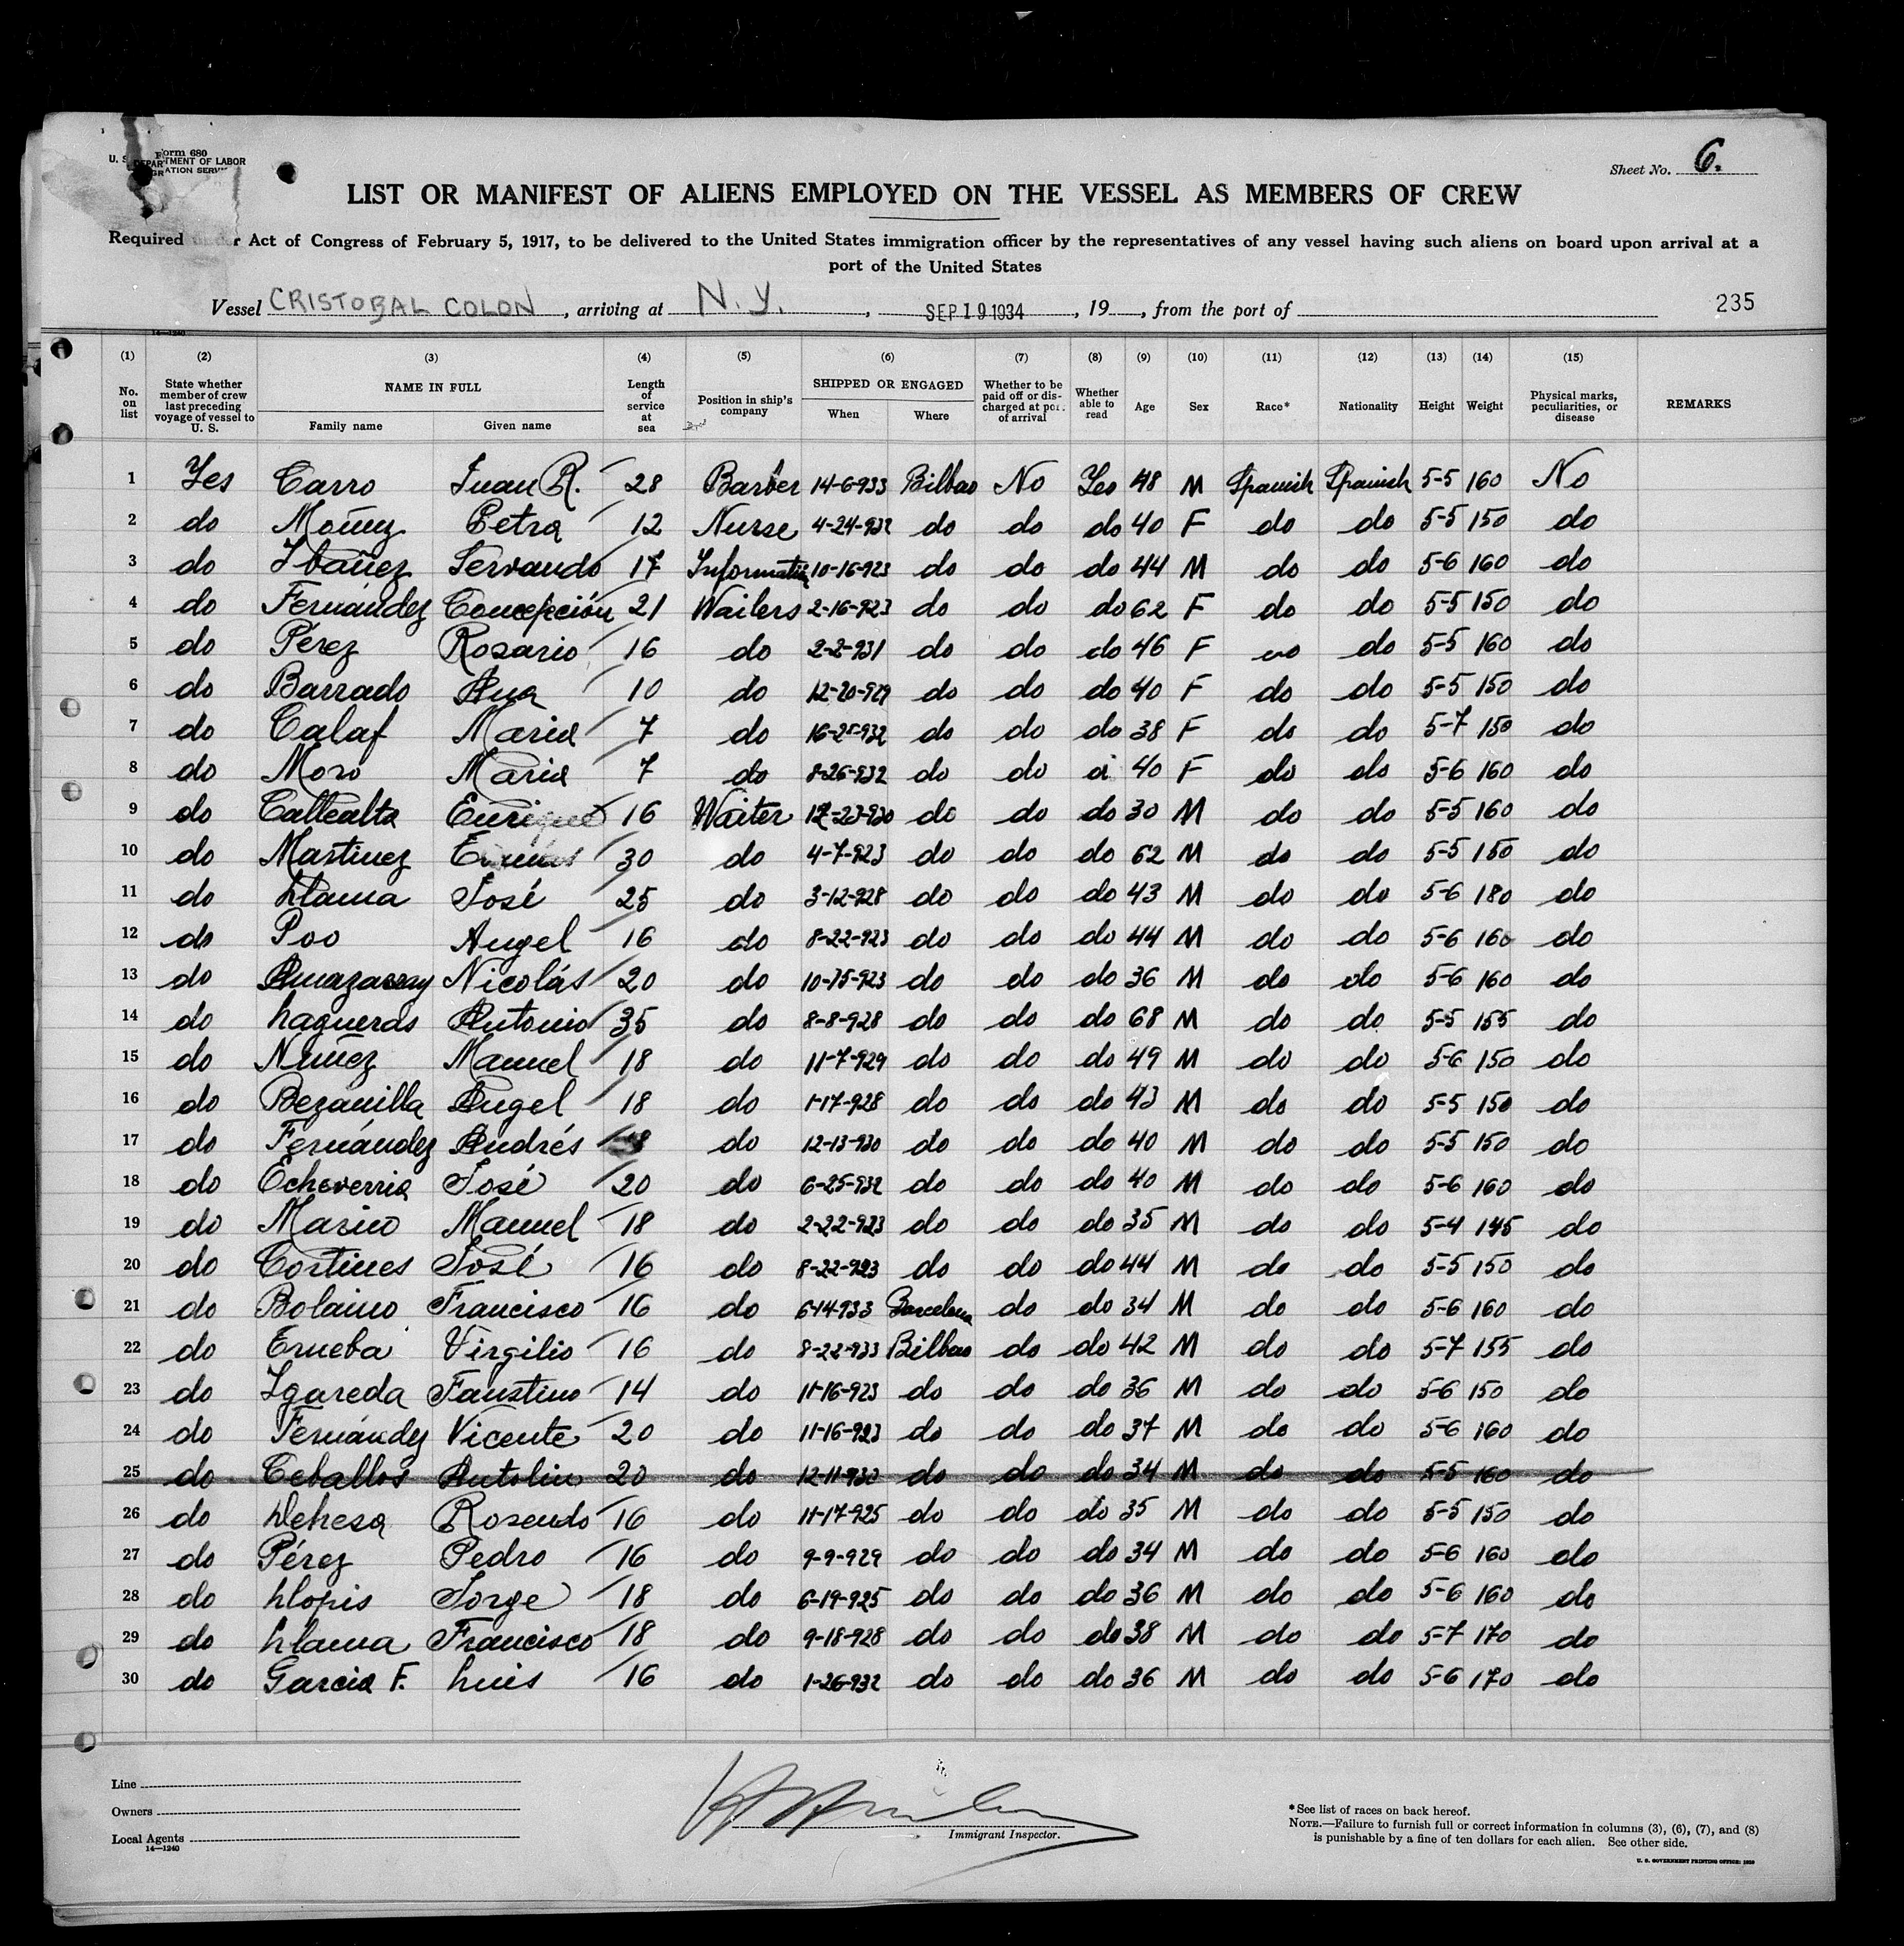 Form 680
U. S. DEPARTMENT OF LABOR
IMMIGRATION SERVICE
Sheet No. 6.
LIST OR MANIFEST OF ALIENS EMPLOYED ON THE VESSEL AS MEMBERS OF CREW
Required under Act of Congress of February 5, 1917, to be delivered to the United States immigration officer by the representatives of any vessel having such aliens on board upon arrival at a
port of the United States
Vessel CRISTOBAL COLON, arriving at N. Y., SEP 19 1934, 19, from the port of 235
14—1240
(1) (2) (3) (4) (5) (6) (7) (8) (9) (10) (11) (12) (13) (14) (15)
No. on list State whether member of crew last preceding voyage of vessel to U. S. NAME IN FULL Family name Given name Length of service at sea Position in ship's company SHIPPED OR ENGAGED When Where Whether to be paid off or discharged at port of arrival Whether able to read Age Sex Race* Nationality Height Weight Physical marks, peculiarities, or disease REMARKS
1 Yes Carro Juan R. 28 Barber 14-6-933 Bilbao No Yes 48 M Spanish Spanish 5-5 160 No
2 do Moúnz Petra 12 Nurse 4-24-932 do do do 40 F do do 5-5 150 do
3 do Ibañez Servando 17 10-16-923 do do do 44 M do do 5-6 160 do
4 do Fernández Concepción 21 Wailers 2-16-923 do do do 62 F do do 5-5 150 do
5 do Pérez Rosario 16 do 2-2-931 do do do 46 F do do 5-5 160 do
6 do Barrado Ana 10 do 12-20-929 do do do 40 F do do 5-5 150 do
7 do Calaf Maria 7 do 16-25-932 do do do 38 F do do 5-7 150 do
8 do Moro Maria 7 do 8-26-932 do do 40 F do do 5-6 160 do
9 do Enrique 16 Waiter 12-23-930 do do do 30 M do do 5-5 160 do
10 do Martinez 30 do 4-7-923 do do do 62 M do do 5-5 150 do
11 do Llama José 25 do 3-12-928 do do do 43 M do do 5-6 180 do
12 do Poo Angel 16 do 8-22-923 do do do 44 M do do 5-6 160 do
13 do Amazarray Nicolás 20 do 10-15-923 do do do 36 M do do 5-6 160 do
14 do Lagueras Antonio 35 do 8-8-928 do do do 68 M do do 5-5 155 do
15 do Nuñez Manuel 18 do 11-7-929 do do do 49 M do do 5-6 150 do
16 do Bezanilla Angel 18 do 1-17-928 do do do 43 M do do 5-5 150 do
17 do Fernández Andrés do 12-13-930 do do do 40 M do do 5-5 150 do
18 do Echeverria José 20 do 6-25-932 do do do 40 M do do 5-6 160 do
19 do Marino Manuel 18 do 2-22-923 do do do 35 M do do 5-4 145 do
20 do Cortines José 16 do 8-22-923 do do do 44 M do do 5-5 150 do
21 do Bolaino Francisco 16 do 6-14-933 Barcelona do do 34 M do do 5-6 160 do
22 do Trueba Virgilio 16 do 8-22-933 Bilbao do do 42 M do do 5-7 155 do
23 do Igareda Faustino 14 do 11-16-923 do do do 36 M do do 5-6 150 do
24 do Fernández Vicente 20 do 11-16-923 do do do 37 M do do 5-6 160 do
25 do Ceballos Antolin 20 do 12-11-930 do do do 34 M do do 5-5 160 do
26 do Dehesa Rosendo 16 do 11-17-925 do do do 35 M do do 5-5 150 do
27 do Pérez Pedro 16 do 9-9-929 do do do 34 M do do 5-6 160 do
28 do Llopis Jorge 18 do 6-19-925 do do do 36 M do do 5-6 160 do
29 do Llama Francisco 18 do 9-18-928 do do do 38 M do do 5-7 170 do
30 do Garcia F. Luis 16 do 1-26-932 do do do 36 M do do 5-6 170 do
Line
Owners
Local Agents
14—1240
Immigrant Inspector.
*See list of races on back hereof.
NOTE.—Failure to furnish full or correct information in columns (3), (6), (7), and (8)
is punishable by a fine of ten dollars for each alien. See other side.
U. S. GOVERNMENT PRINTING OFFICE: 1929